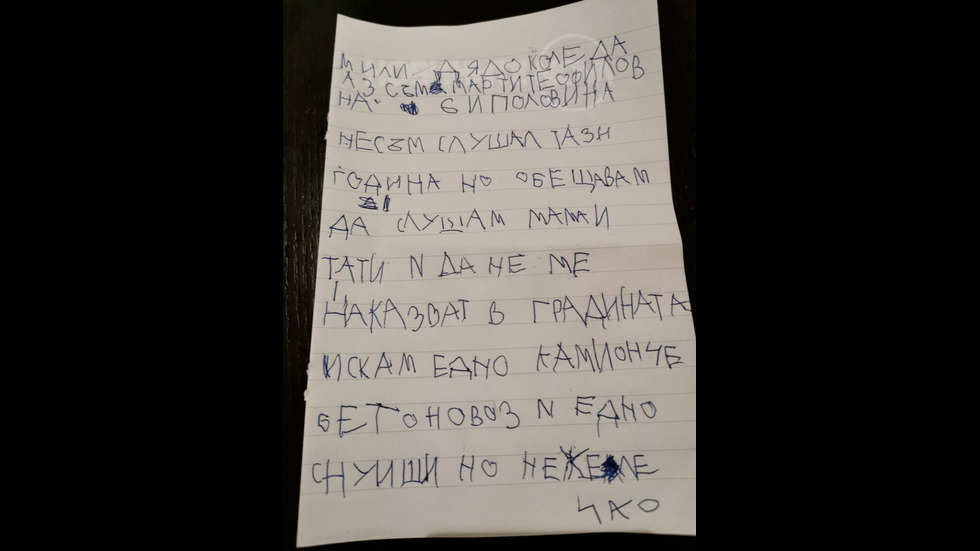 МИЛИ ДЯДО КОЛЕДА
АЗ СЪМ МАРТИ ТЕОФИЛОВ
НА 6 И ПОЛОВИНА
НЕСЪМ СЛУШАЛ ТАЗИ
ГОДИНА НО ОБЕЩАВАМ
ДА СЛУШАМ МАМА И
ТАТИ И ДА НЕ МЕ
НАКАЗВАТ В ГРАДИНАТА
ИСКАМ ЕДНО КАМИОНЧЕ
БЕТОНОВОЗ И ЕДНО
СНУИШИ НО НЕЖЕЛЕ
ЧАО